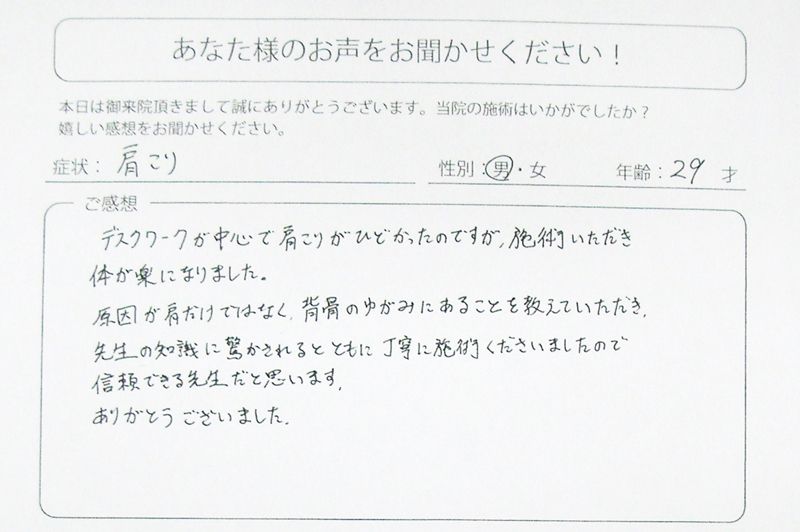 あなた様のお声をお聞かせください！
本日は御来院頂きまして誠にありがとうございます。当院の施術はいかがでしたか？
嬉しい感想をお聞かせください。
症状：肩こり 性別：男・女 年齢：29 才
ご感想
デスクワークが中心で肩こりがひどかったのですが、施術いただき
体が楽になりました。
原因が肩だけではなく、背骨のゆがみにあることを教えていただき、
先生の知識に驚かされるとともに丁寧に施術くださいましたので
信頼できる先生だと思います。
ありがとうございました。